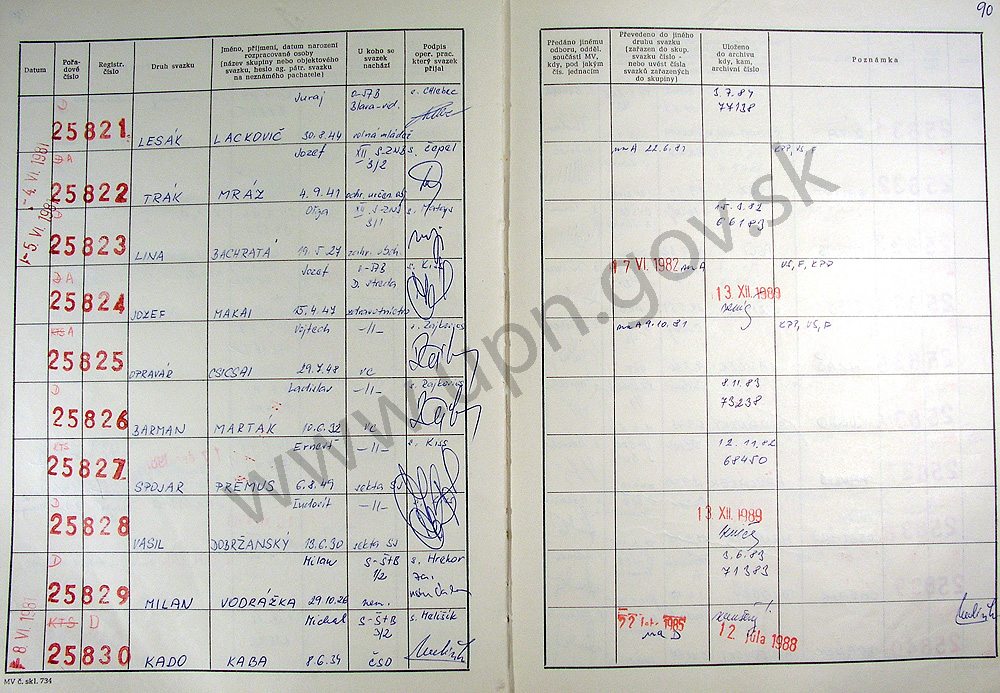 90
Datum
Pořadové číslo
Registr. číslo
Druh svazku
Jméno, příjmení, datum narození
rozpracované osoby
(název skupiny nebo objektového
svazku, heslo ag. pátr. svazku
na neznámého pachatele)
U koho se
svazek
nachází
Podpis
oper. prac.
který svazek
přijal
Předáno jinému
odboru, odděl.
součásti MV,
kdy, pod jakým
čís. jednacím
Převedeno do jiného
druhu svazku
(zařazen do skup.
svazku číslo -
nebo uvést čísla
svazků zařazených
do skupiny)
Uloženo
do archivu
kdy, kam,
archivní číslo
Poznámka
D Juraj
25821 LESÁK LACKOVIČ 30.8.44 3.7.84
77138
- 4. VI. 1981
A Jozef XII S-ZNB s. Čapel
25822 TRÁK MRÁZ 4.9.41 22.6.81 KPP, VS, F
- 5. VI. 198
Oľga XII S-ZNB
25823 LINA BACHRATÁ 19.5.27 66183
D A Jozef D. Streda s. Kiss
25824 JOZEF MAKAI 15.4.47 zdravotníctvo 17 VI. 1982 A VS, F, KPP
13. XII. 1989
KTS A Vojtech -||-
25825 OPRAVÁR CSICSAI 29.7.48 vc A 9.10.81 KPP, VS, F
D Ladislav -||- s. Rajkovics
25826 BARMAN MARTÁK 10.6.32 vc 8.11.83
73238
KTS Ernest -||- s. Kiss
25827 SPOJAR PRÉMUS 6.8.49 sekta SJ 12.11.82
68450
D Ľudovít -||-
25828 VASIL DOBRŽANSKÝ 13.6.30 sekta SJ 13. XII. 1989
D Milan S-ŠtB
1/2 s. Hrekor
25829 MILAN VODRÁŽKA 29.10.26 nem. 3.6.83
71383
8. VI. 1981
KTS D Michal S-ŠtB
3/2 s. Melišík
25830 KADO KABA 8.6.34 ČSD na D
12. júla 1988
MV č. skl. 734
www.upn.gov.sk